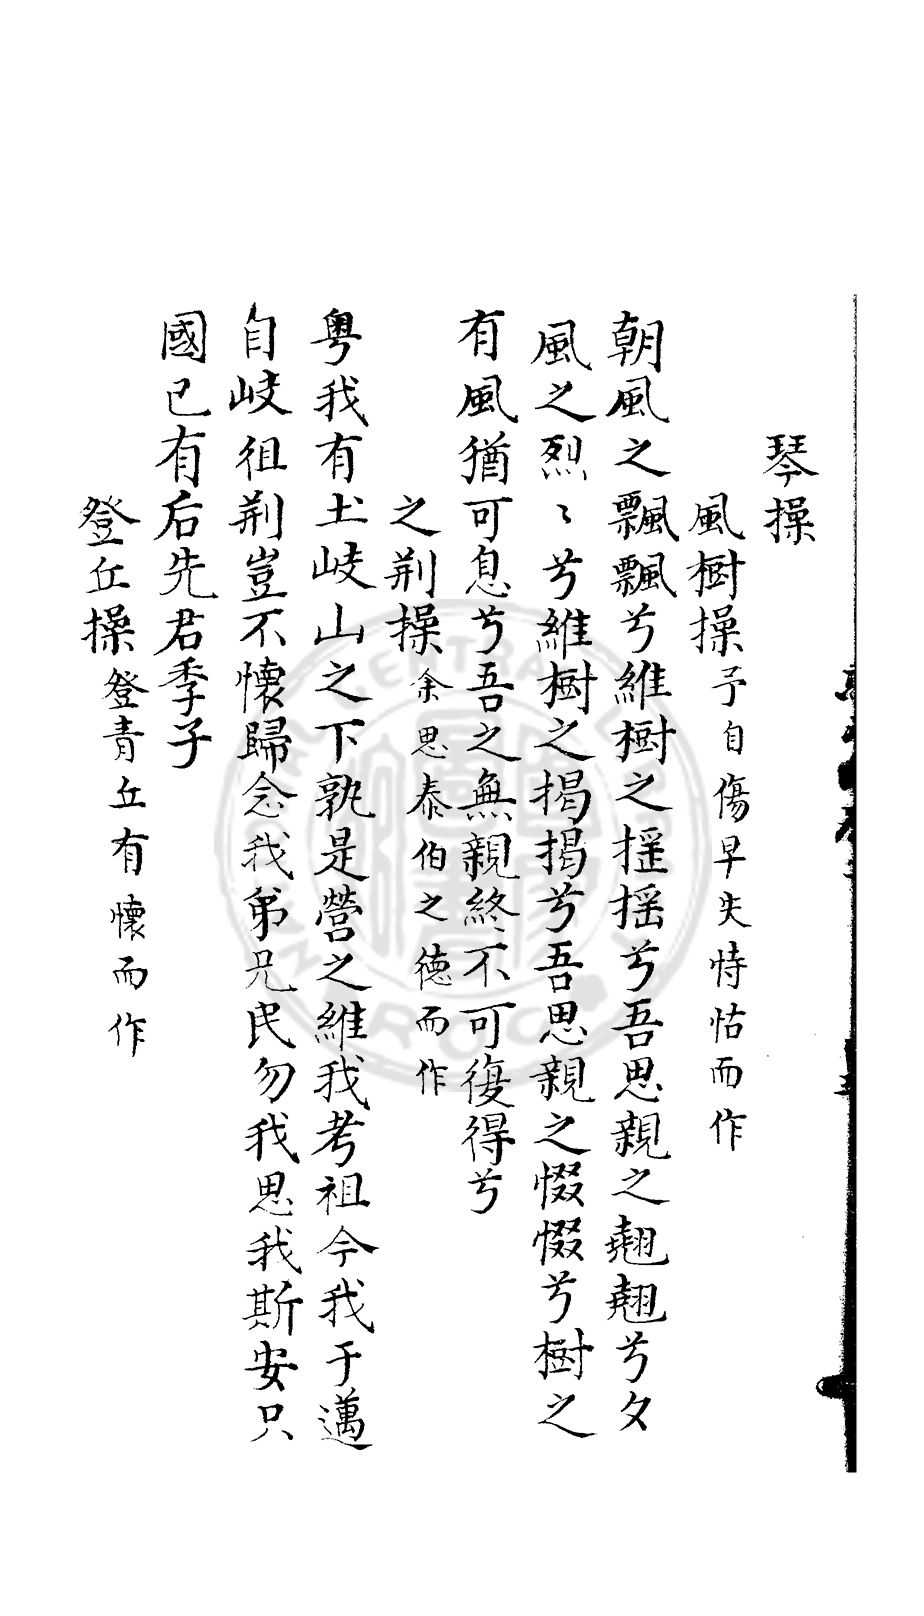 琴操
風樹操予自傷早失恃怙而作
朝風之飄飄兮維樹之搖搖兮吾思親之翹翹兮夕
風之烈〻兮維樹之揭揭兮吾思親之惙惙兮樹之
有風猶可息兮吾之無親終不可復得兮
之荆操余思泰伯之德而作
粤我有土岐山之下孰是營之維我考祖今我于邁
自岐徂荆豈不懷歸念我弟兄民勿我思我斯安只
國已有后先君季子
登丘操登青丘有懷而作
NATIONAL CENTRAL LIBRARY R.O.C.